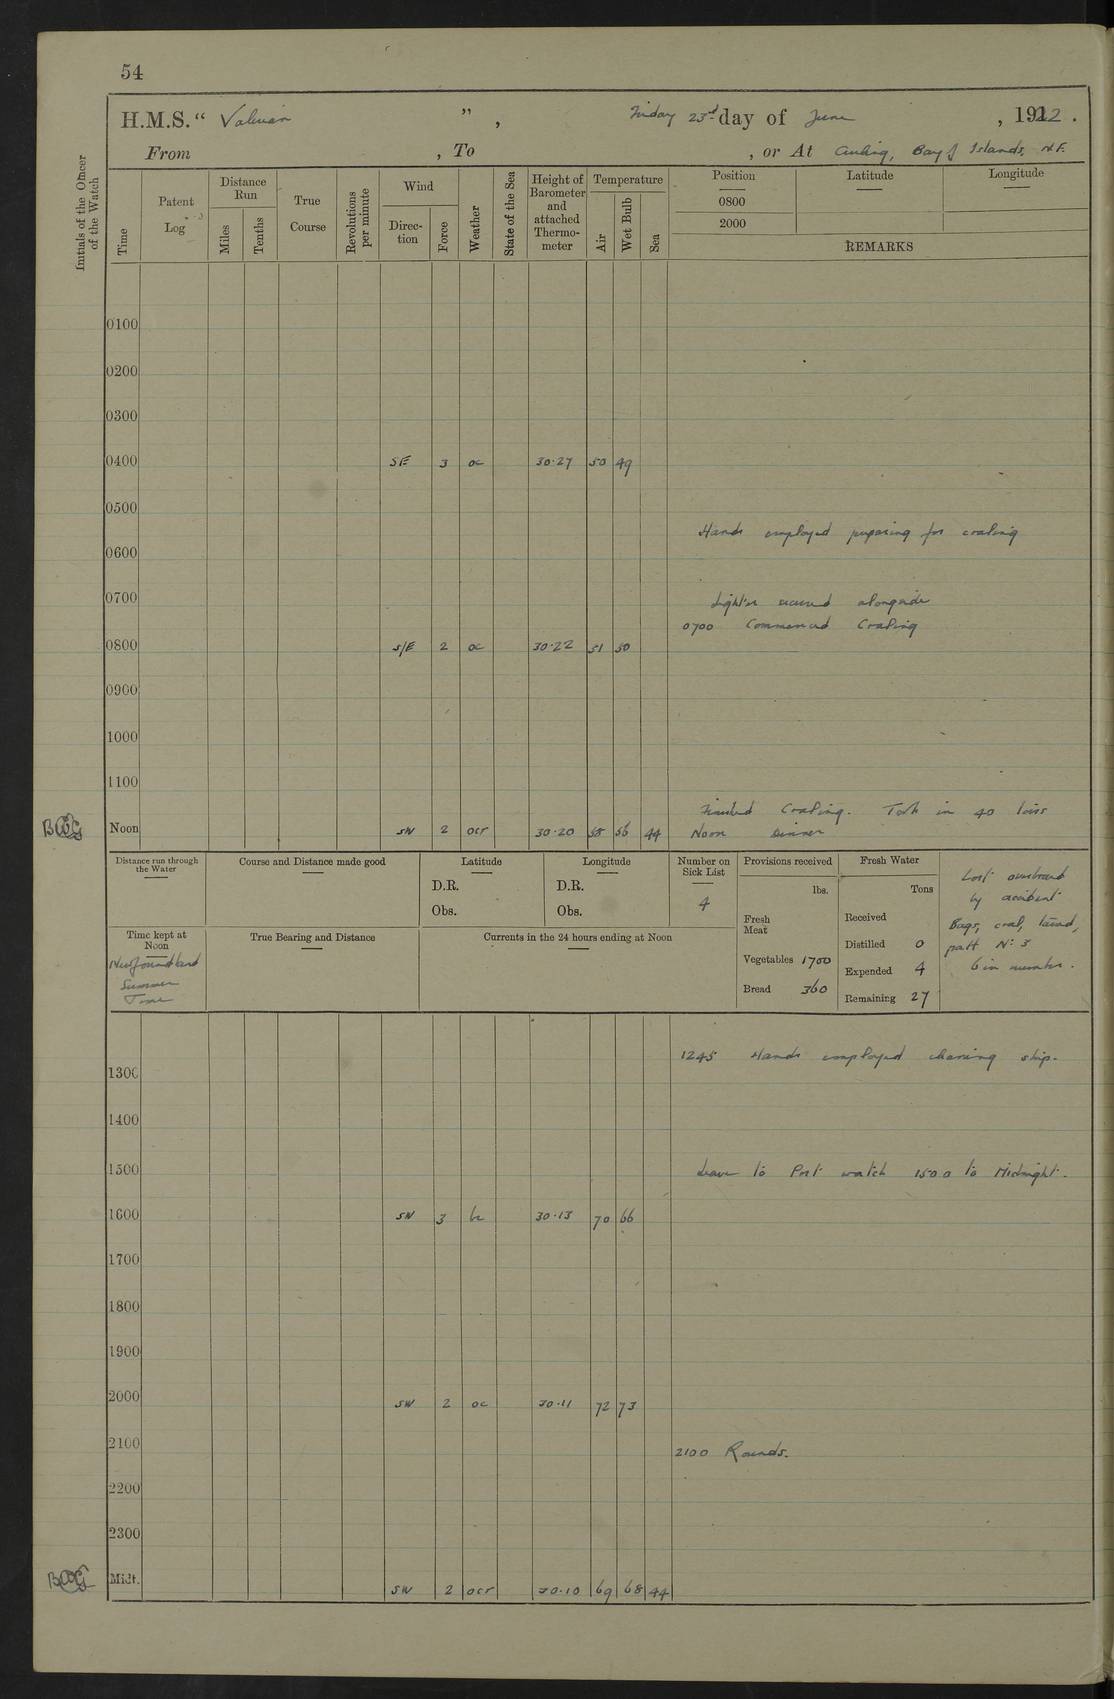 54
H.M.S. “ Valerian ” , Friday 23rd day of June , 1922 .
From , To , or At Curling, Bay of Islands, N.F.
Initials of the Officer of the Watch
Time
Patent Log
Distance Run
Miles
Tenths
True Course
Revolutions per minute
Wind
Direction
Force
Weather
State of the Sea
Height of Barometer and attached Thermometer
Temperature
Air
Wet Bulb
Sea
Position
Latitude
Longitude
0800
2000
REMARKS
0100
0200
0300
0400 SE 3 oc 30.27 50 49
0500
Hands employed preparing for coaling
0600
0700
Lighter secured alongside
0700 Commenced Coaling
0800 S/E 2 oc 30.22 51 50
0900
1000
1100
Finished Coaling. Took in 40 tons
Noon SW 2 ocr 30.20 58 56 44 Noon Dinner
Distance run through the Water
Course and Distance made good
Latitude
D.R.
Obs.
Longitude
D.R.
Obs.
Number on Sick List
4
Provisions received
lbs.
Fresh Meat
Vegetables 1700
Bread 360
Fresh Water
Tons
Received
Distilled 0
Expended 4
Remaining 27
Lost overboard
by accident
Bags, coal,
patt No 3
6 in number.
Time kept at Noon
Newfoundland
Summer
Time
True Bearing and Distance
Currents in the 24 hours ending at Noon
1245 Hands employed cleaning ship.
1300
1400
1500 Leave to Port watch 1500 to Midnight.
1600 SW 3 bc 30.13 70 66
1700
1800
1900
2000 SW 2 oc 30.11 72 73
2100 2100 Rounds.
2200
2300
Midt. SW 2 ocr 30.10 69 68 44